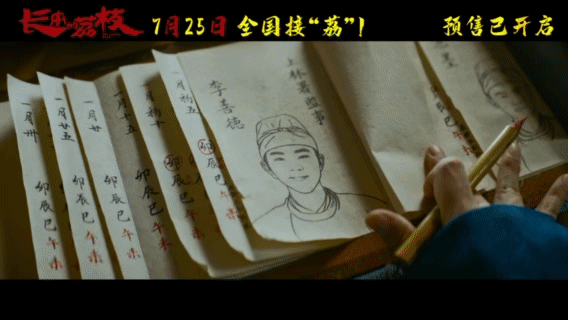 长安的荔枝 7月25日 全国接“荔”! 预售已开启
上林署监事
李善德
一月初五
卯辰巳午未
一月初十
卯辰巳午未
一月十五
卯辰巳午未
一月廿
卯辰巳午未
一月廿五
卯辰巳午未
一月卅
卯辰巳午未
卯辰巳午